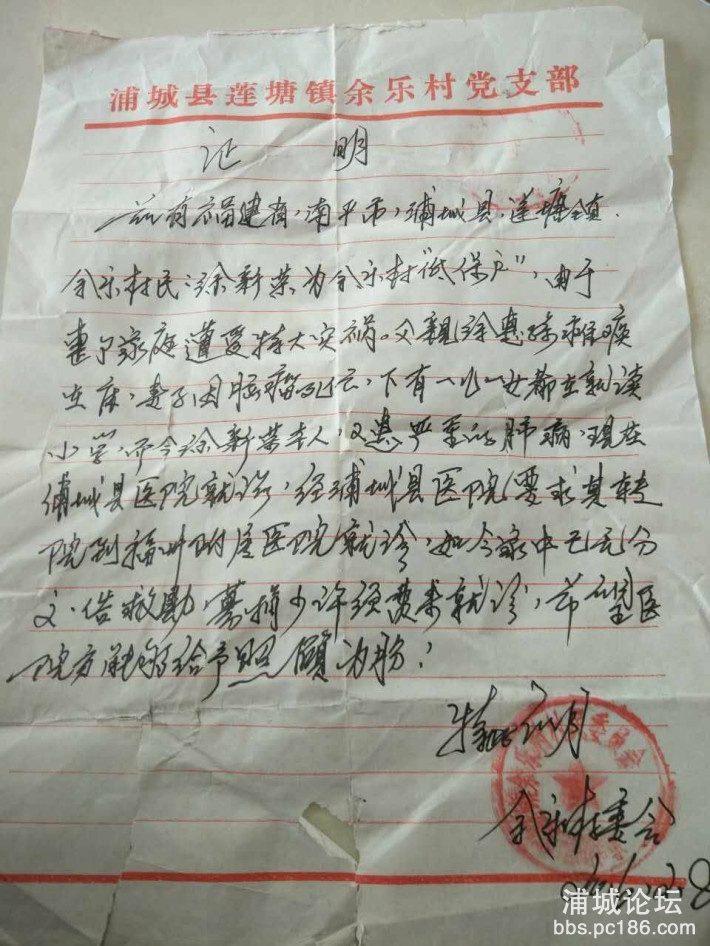 浦城县莲塘镇余乐村党支部
证 明
兹有福建省,南平市,浦城县,莲塘镇
余乐村民:徐新荣为余乐村"低保户",由于
家庭遭受特大灾祸。父親徐惠 瘫痪
在床,妻子因肿瘤死亡,下有一儿一女都在就读
小学,而今徐新荣本人,又患严重的肺病,现在
浦城县医院就诊,经浦城县医院要求其转
院到福州附属医院就诊,如今家中已无分
文.借 募捐少许 费来就诊,希望医
院方能够给予照顧为盼!
特此证明
委员会
余乐村委会
浦城论坛
bbs.pc186.com